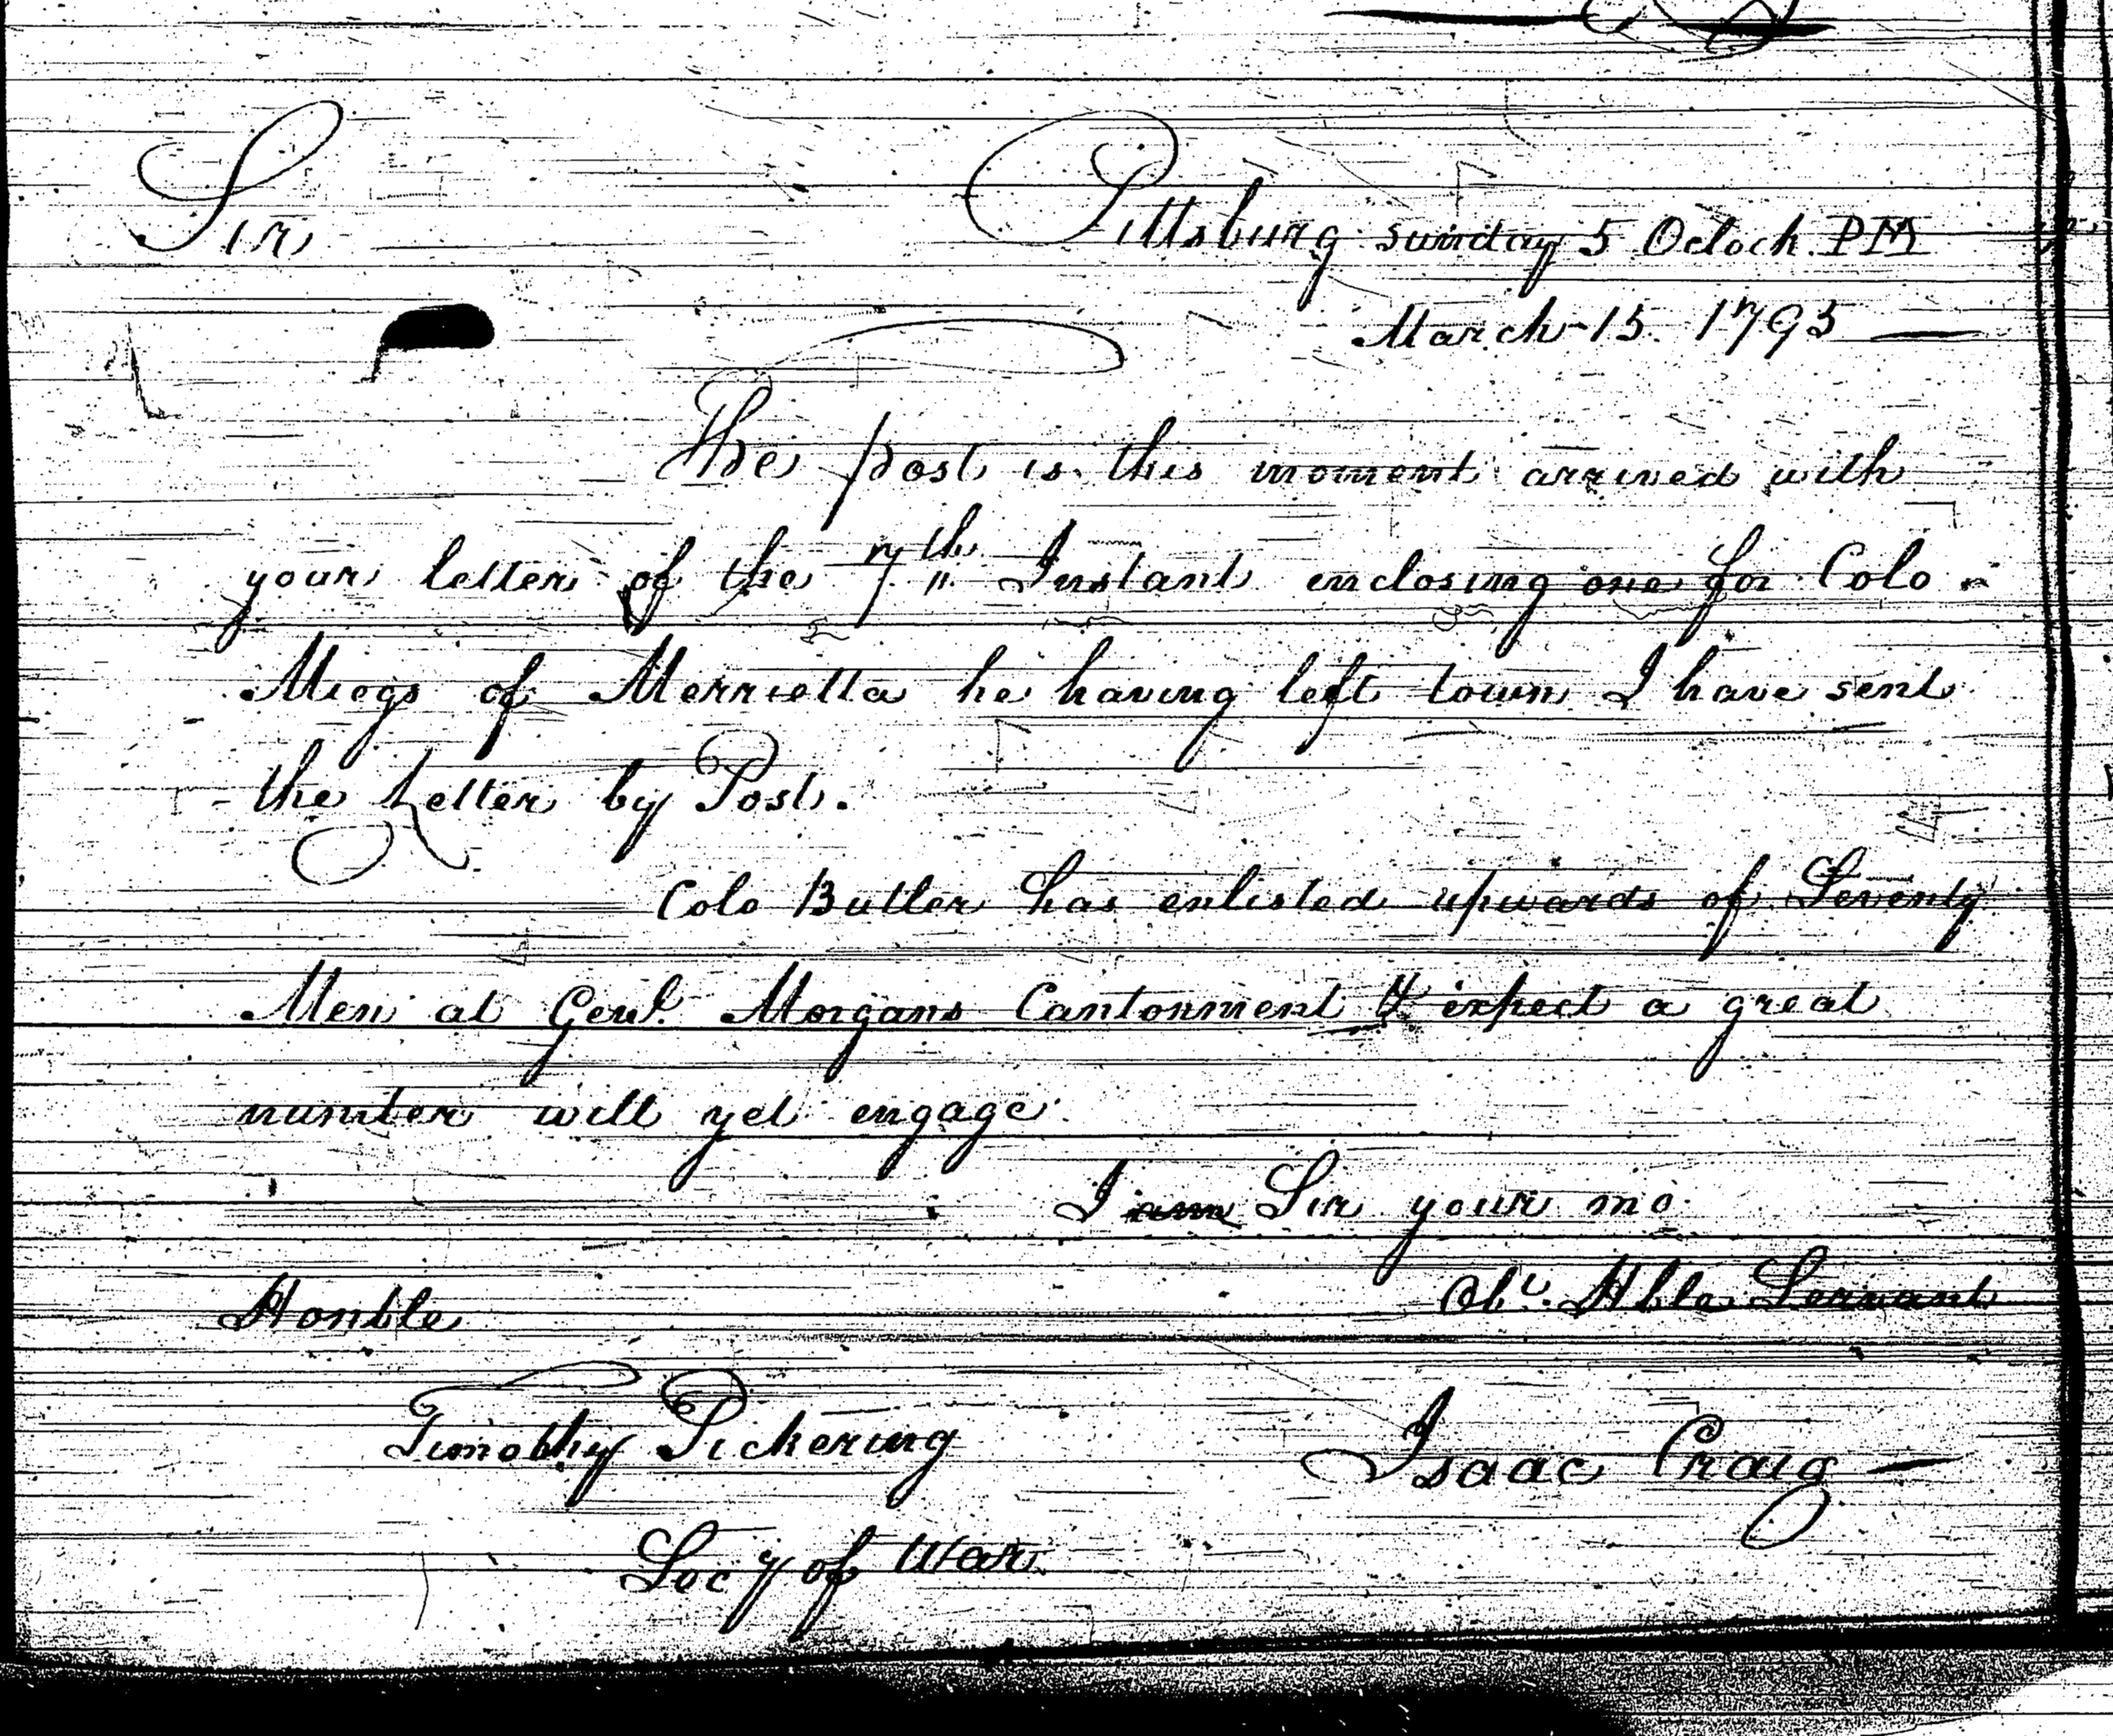 Sir
Pittsburg sunday 5 Oclock PM
March 15. 1795
The post is this moment arrived with
your letter of the 7th Instant enclosing one for Colo
Miegs of Merrietta he having left town I have sent
the Letter by Post.
Colo Butler has enlisted upwards of Seventy
Men at Genl. Morgans Cantonment & expect a great
number will yet engage
I am Sir your mo
Obt. Hble Servant
Honble
Timothy Pickering
Isaac Craig
Secy of War